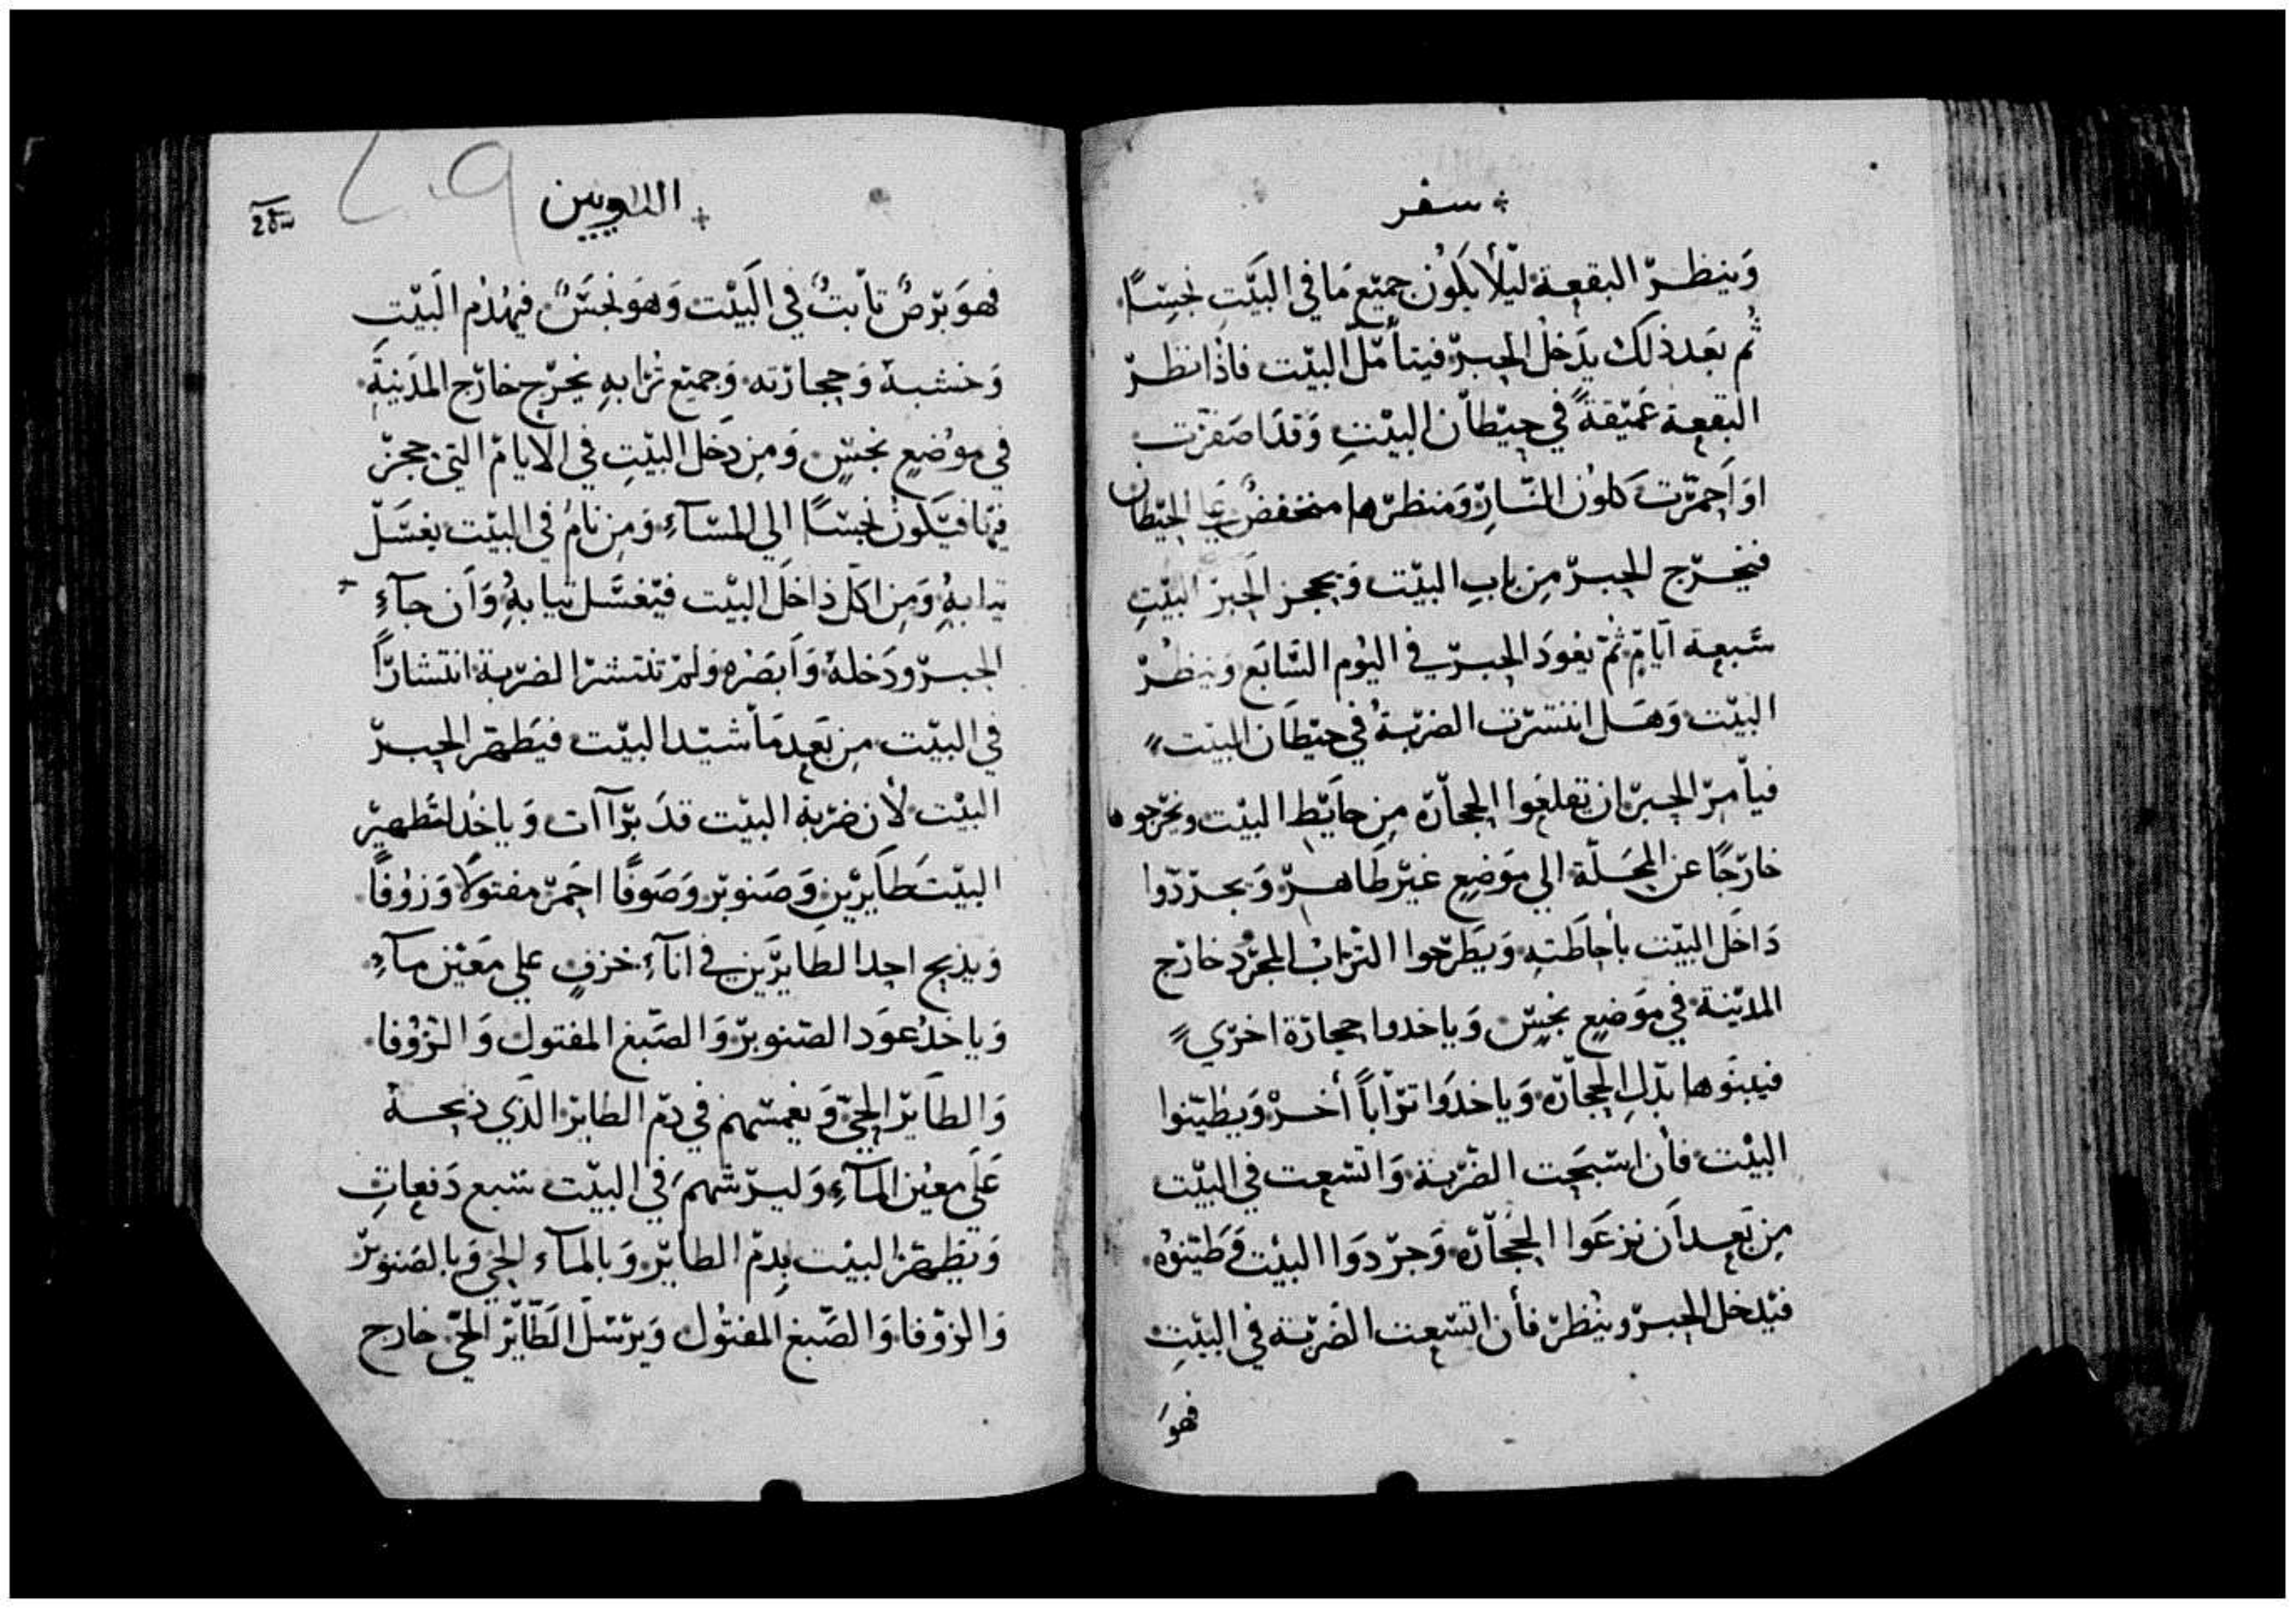 سفر
وَينظرّ البقعة ليّلا يَكوُن جميّع مَا في البَيّت نجسًا
ثُم بَعد ذلك يدَخل الحبرّ فيتأمّل البيّت فاذا نظرّ
البّقعة عَميّقةً في حيّطان البيّت وَقدَ اصَفرّت
اوَ احمرّت كلون النّارّ وَمنظرّها منخفضٌ علي الحيّطان
فيخرّج الحبرّ مِن بابِ البيّت وَيحجز الحَبرّ البيّتِ
سَّبعة ايَامٍ ثمّ يعَودَ الحبرّ في اليوُم السَّابَع وَينظرّ
البيّت وَهَل انتشرّت الضرّبةُ في حيّطَان البيّت
فيأمرّ الحبرّ ان تقلعَوا الحجارّة مِن حايَط البيّت ونخرّجوها
خارّجًا عن المحَلّة الي موَضِع غيّر طَاهرّ وَيجرّدّوا
دَاخَل البيّت بأحاطَتهِ وَيَطرّحوا الترّاب المجرّد خارّج
المديّنة في موَضِعٍ نجسٍ وَياخدوا حجارّة اخرّي
فيبنَوها بدّلِ الحجارّة وَياخدَوا ترّاباً أخرّ وَيطيّنوا
البيّت فأن اسّبحَت الضّرّبة وَاتسّعت في البيّت
مِن بَعد اَن نزعَوا الحجَارّة وَجرّدوَا البيّت وَطيّنوُه
فيّدخل الحبرّ وينُظرّ فأن اتسّعت الضّرّبة في البيّتِ
فهوَ
اللاويين
فهوَ برّصٌ تاَبتٌ في البَيّت وَهوَ نجسٌَ فيهدُم البَيّت
وَخشبهُ وَحجارّته وَجميَع ترّابهِ يخرّج خارّج المدَينةِ
في موُضعٍ نجسٍّ وَمِن دَخل البيّتِ في الايامّ التي حجزّ
فيّها فيَكونَ نجسًا الي المسّآءِ وَمِن نامُ في البيّت يغسّلَ
تيابهِ وَمِن اكَل دَاخلَ البيّت فيَغسّل تيابهُِ وَاَن جآءِ
الحبرّ ودَخلهُ وَاَبصَرَه وَلمّ تنتشرّ الضرّبة انتشارّاً
في البيّت مِن بَعدِ مَا شيّد البيّت فيَطهرّ الحبرّ
البيّت لأن ضرّبة البيّت قدَ برّاَات وَياخدُ لتَطهيرّ
البيّت طَايرّيَن وَصنوبرّ وَصَوفًا احَمرّ مفتولاً وَزوُفاً
وَيدبح احدا الطايرّيَن في انآءِ خزفٍ علي مَعَيّن مآءِ
وَياخدُ عوَد الصّنوبرّ وَالصَّبغ المفتول وَالزُوُفا
وَالطاَيرّ الحيّ وَيغمسّهم في دمّ الطايرّ الذَي ذبحهُ
عَلَي معيُن المآءِ وَليرّشهمَ في البيّت سّبع دَفعاتِ
وَيَطهرّ البيّت بِدمّ الطايرّ وَبالمآء الحي وَبالصَنوبرّ
وَالزوّفا وَالصّبغ المفتوُل وَيرّسّل الطَّايّرّ الحيّ خارج